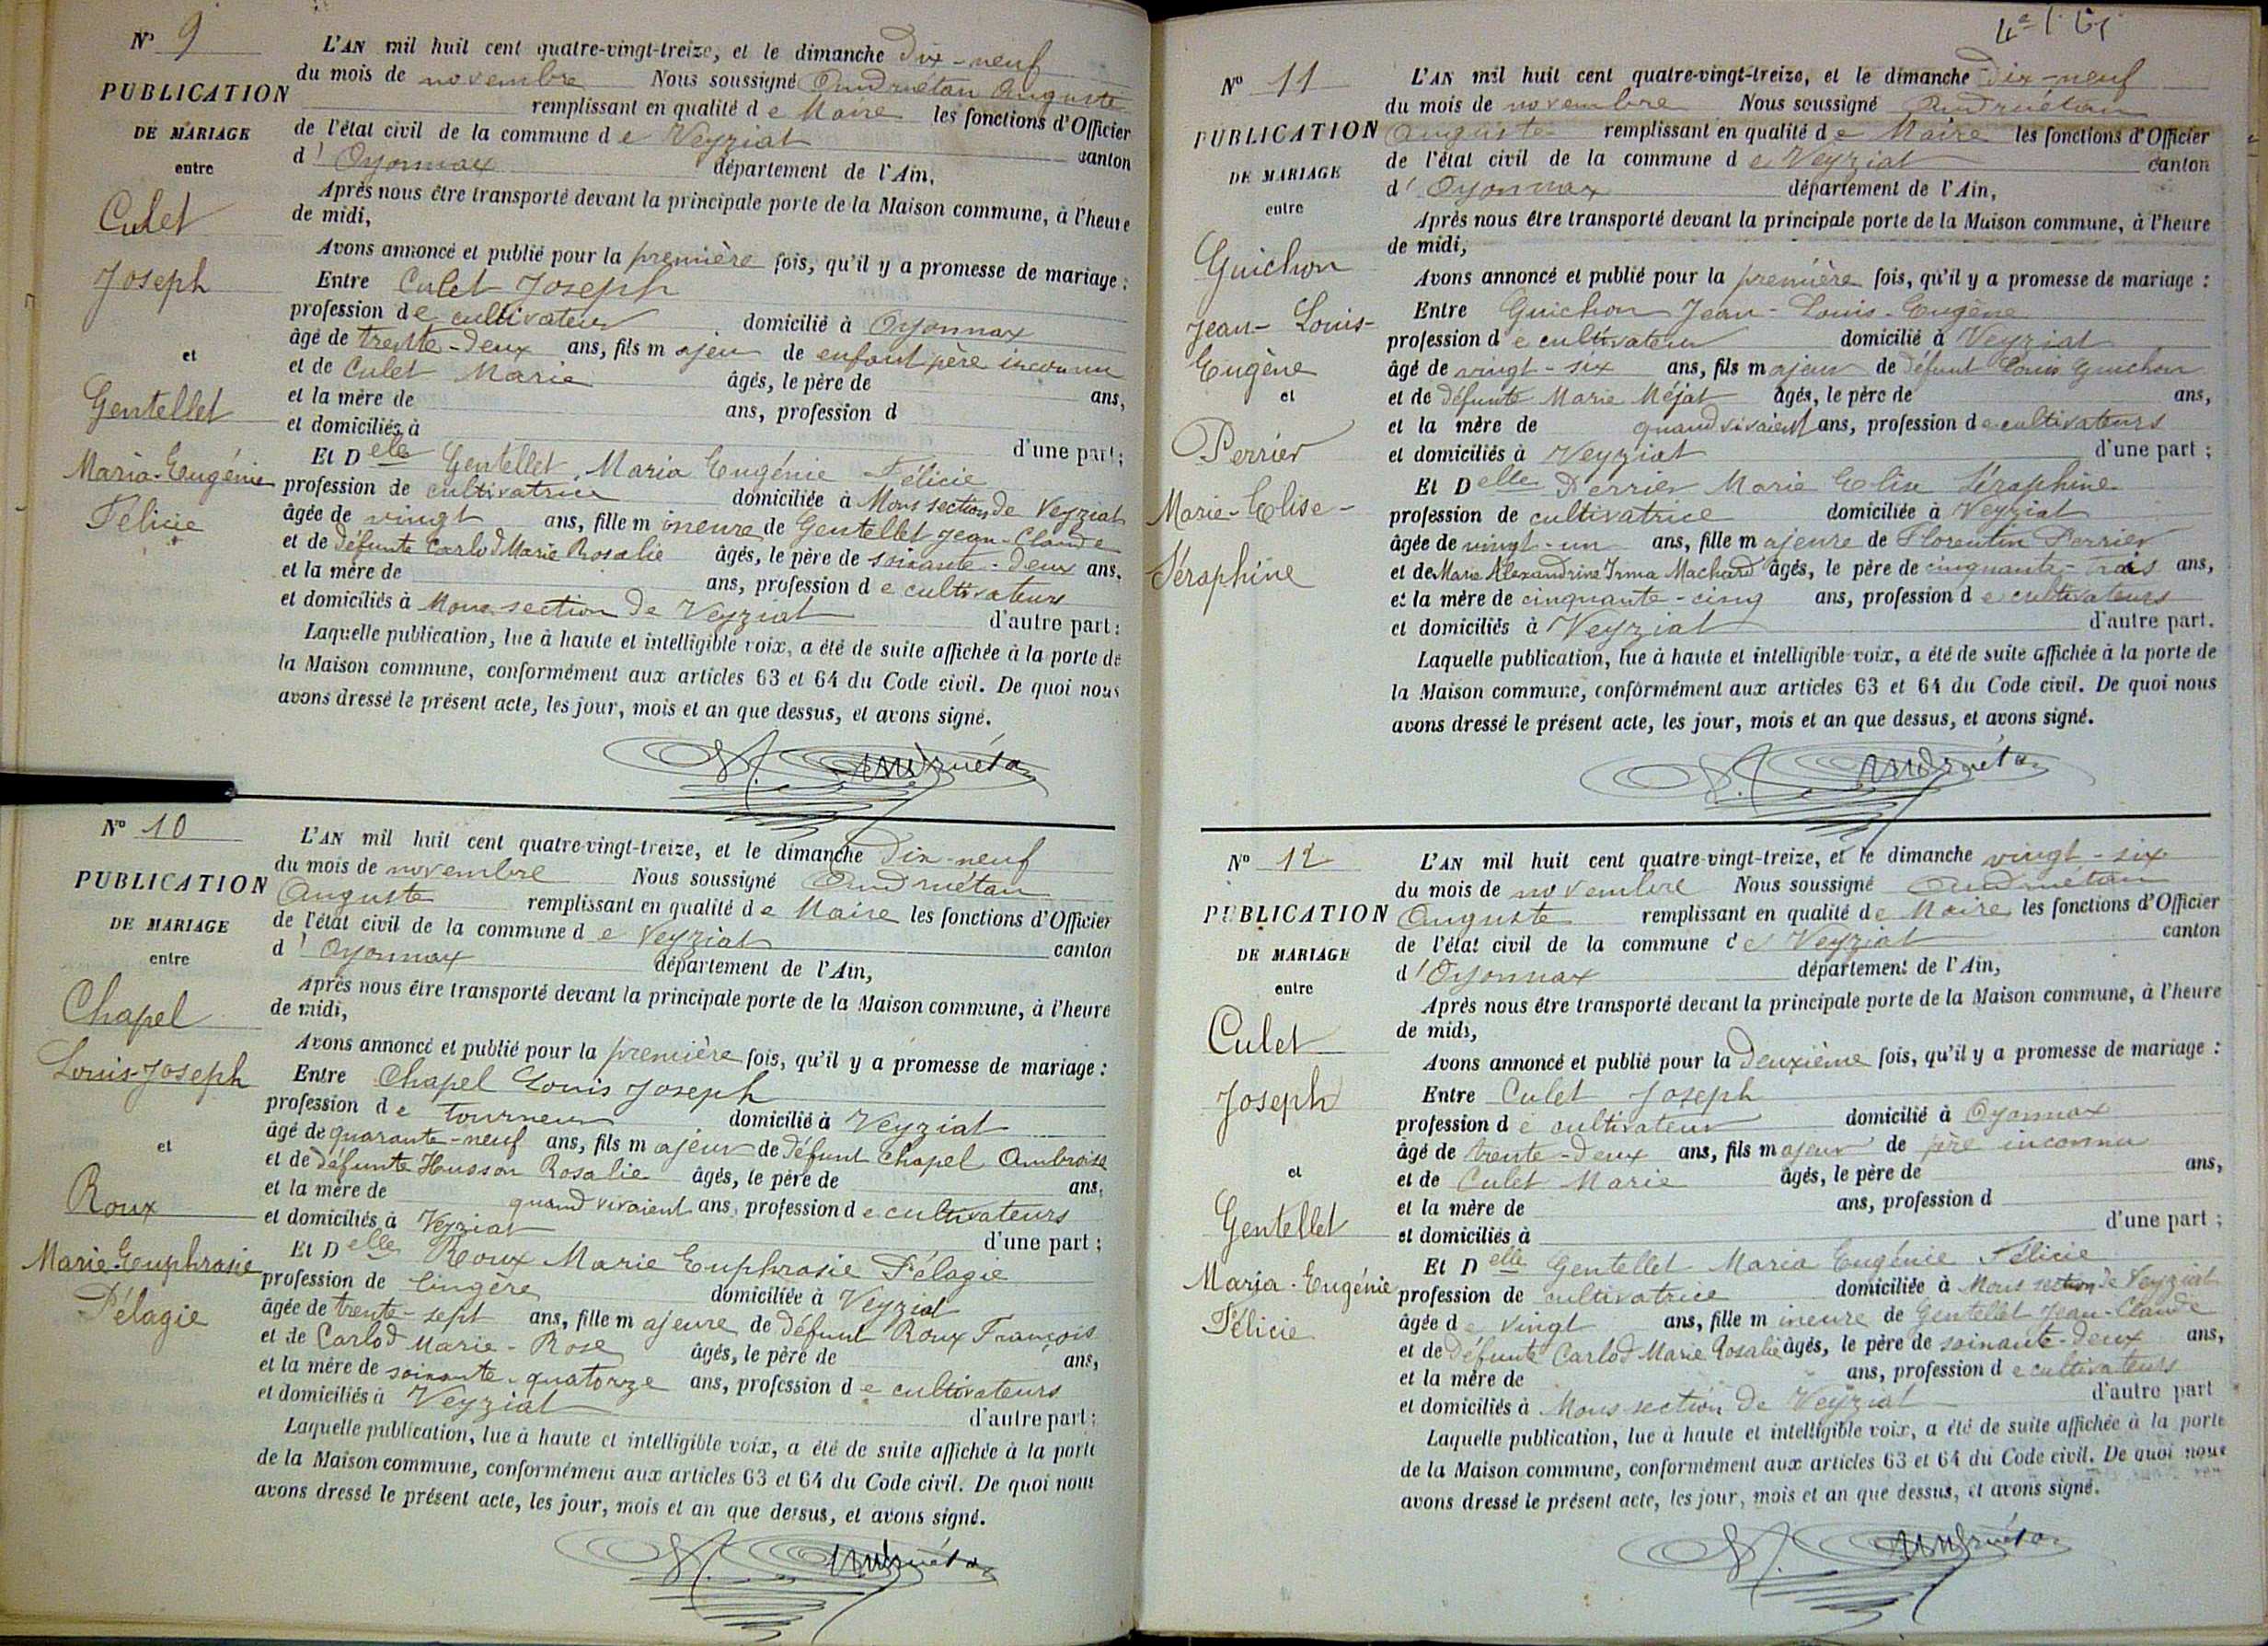 N° 9
PUBLICATION
DE MARIAGE
entre
Culet
Joseph
et
Gentellet
Maria-Eugénie
Félicie
L'AN mil huit cent quatre-vingt-treize, et le dimanche Dix-neuf
du mois de novembre Nous soussigné Andruétan Auguste
remplissant en qualité de Maire les fonctions d'Officier
de l'état civil de la commune de Veyziat canton
d'Oyonnax département de l'Ain,
Après nous être transporté devant la principale porte de la Maison commune, à l'heure
de midi,
Avons annoncé et publié pour la première fois, qu'il y a promesse de mariage :
Entre Culet Joseph
profession de cultivateur domicilié à Oyonnax
âgé de trente-deux ans, fils majeu de enfant père inconnu
et de Culet Marie âgés, le père de ans,
et la mère de ans, profession d
et domiciliés à d'une part ;
Et Delle Gentellet Maria Eugénie Félicie
profession de cultivatrice domiciliée à Mons section de Veyziat
âgée de vingt ans, fille mineure de Gentellet Jean-Claude
et de défunte Carlod Marie Rosalie âgés, le père de soixante-deux ans,
et la mère de ans, profession de cultivateurs
et domiciliés à Mons section de Veyziat d'autre part :
Laquelle publication, lue à haute et intelligible voix, a été de suite affichée à la porte de
la Maison commune, conformément aux articles 63 et 64 du Code civil. De quoi nous
avons dressé le présent acte, les jour, mois et an que dessus, et avons signé.
A. Andruétan
N° 10
PUBLICATION
DE MARIAGE
entre
Chapel
Louis-Joseph
et
Roux
Marie-Euphrasie
Pélagie
L'AN mil huit cent quatre-vingt-treize, et le dimanche Dix-neuf
du mois de novembre Nous soussigné Andruétan
Auguste remplissant en qualité de Maire les fonctions d'Officier
de l'état civil de la commune de Veyziat canton
d'Oyonnax département de l'Ain,
Après nous être transporté devant la principale porte de la Maison commune, à l'heure
de midi,
Avons annoncé et publié pour la première fois, qu'il y a promesse de mariage :
Entre Chapel Louis Joseph
profession de tourneur domicilié à Veyziat
âgé de quarante-neuf ans, fils majeur de défunt Chapel Ambroise
et de défunte Husson Rosalie âgés, le père de ans,
et la mère de quand vivaient ans, profession de cultivateurs
et domiciliés à Veyziat d'une part ;
Et Delle Roux Marie Euphrasie Pélagie
profession de lingère domiciliée à Veyziat
âgée de trente-sept ans, fille majeure de défunt Roux François
et de Carlod Marie-Rose âgés, le père de ans,
et la mère de soixante-quatorze ans, profession de cultivateurs
et domiciliés à Veyziat d'autre part ;
Laquelle publication, lue à haute et intelligible voix, a été de suite affichée à la porte
de la Maison commune, conformément aux articles 63 et 64 du Code civil. De quoi nous
avons dressé le présent acte, les jour, mois et an que dessus, et avons signé.
A. Andruétan
N° 11
PUBLICATION
DE MARIAGE
entre
Guichon
Jean-Louis-
Eugène
et
Perrier
Marie-Elise-
Séraphine
L'AN mil huit cent quatre-vingt-treize, et le dimanche Dix-neuf
du mois de novembre Nous soussigné Andruétan
Auguste remplissant en qualité de Maire les fonctions d'Officier
de l'état civil de la commune de Veyziat canton
d'Oyonnax département de l'Ain,
Après nous être transporté devant la principale porte de la Maison commune, à l'heure
de midi,
Avons annoncé et publié pour la première fois, qu'il y a promesse de mariage :
Entre Guichon Jean-Louis-Eugène
profession de cultivateur domicilié à Veyziat
âgé de vingt-six ans, fils majeur de défunt Louis Guichon
et de défunte Marie Méjat âgés, le père de ans,
et la mère de quand vivaient ans, profession de cultivateurs
et domiciliés à Veyziat d'une part ;
Et Delle Perrier Marie Elise Séraphine
profession de cultivatrice domiciliée à Veyziat
âgée de vingt-un ans, fille majeure de Florentin Perrier
et de Marie Alexandrine Irma Machard âgés, le père de cinquante-trois ans,
et la mère de cinquante-cinq ans, profession de cultivateurs
et domiciliés à Veyziat d'autre part.
Laquelle publication, lue à haute et intelligible voix, a été de suite affichée à la porte de
la Maison commune, conformément aux articles 63 et 64 du Code civil. De quoi nous
avons dressé le présent acte, les jour, mois et an que dessus, et avons signé.
A. Andruétan
N° 12
PUBLICATION
DE MARIAGE
entre
Culet
Joseph
et
Gentellet
Maria-Eugénie
Félicie
L'AN mil huit cent quatre-vingt-treize, et le dimanche vingt-six
du mois de novembre Nous soussigné Andruétan
Auguste remplissant en qualité de Maire les fonctions d'Officier
de l'état civil de la commune de Veyziat canton
d'Oyonnax département de l'Ain,
Après nous être transporté devant la principale porte de la Maison commune, à l'heure
de midi,
Avons annoncé et publié pour la deuxième fois, qu'il y a promesse de mariage :
Entre Culet Joseph
profession de cultivateur domicilié à Oyonnax
âgé de trente-deux ans, fils majeur de père inconnu
et de Culet Marie âgés, le père de ans,
et la mère de ans, profession d
et domiciliés à d'une part ;
Et Delle Gentellet Maria Eugénie Félicie
profession de cultivatrice domiciliée à Mons section de Veyziat
âgée de vingt ans, fille mineure de Gentellet Jean-Claude
et de défunte Carlod Marie Rosalie âgés, le père de soixante-deux ans,
et la mère de ans, profession de cultivateurs
et domiciliés à Mons section de Veyziat d'autre part
Laquelle publication, lue à haute et intelligible voix, a été de suite affichée à la porte
de la Maison commune, conformément aux articles 63 et 64 du Code civil. De quoi nous
avons dressé le présent acte, les jour, mois et an que dessus, et avons signé.
A. Andruétan